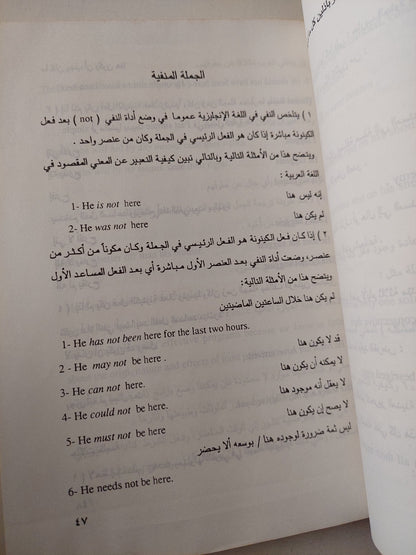 الجملة المنفية
١ ) يتلخص النفي في اللغة الإنجليزية عموما في وضع أداة النفي ( not ) بعد فعل
الكينونة مباشرة إذا كان هو الفعل الرئيسي في الجملة وكان من عنصر واحد .
ويتضح هذا من الأمثلة التالية وبالتالي تبين كيفية التعبير عن المعني المقصود في
اللغة العربية :
1- He is not here
إنه ليس هنا
2- He was not here
لم يكن هنا
٢ ) إذا كان فعل الكينونة هو الفعل الرئيسي في الجملة وكان مكوناً من أكثر من
عنصر، وضعت أداة النفي بعد العنصر الأول مباشرة أي بعد الفعل المساعد الأول
ويتضح هذا من الأمثلة التالية:
لم يكن هنا خلال الساعتين الماضيتين
1- He has not been here for the last two hours.
قد لا يكون هنا
2- He may not be here .
لا يمكنه أن يكون هنا
3- He can not here.
لا يعقل أنه موجود هنا
4- He could not be here.
لا يصح إن يكون هنا
5- He must not be here.
ليس ثمة ضرورة لوجوده هنا / بوسعه ألا يحضر
6- He needs not be here.
٤٧